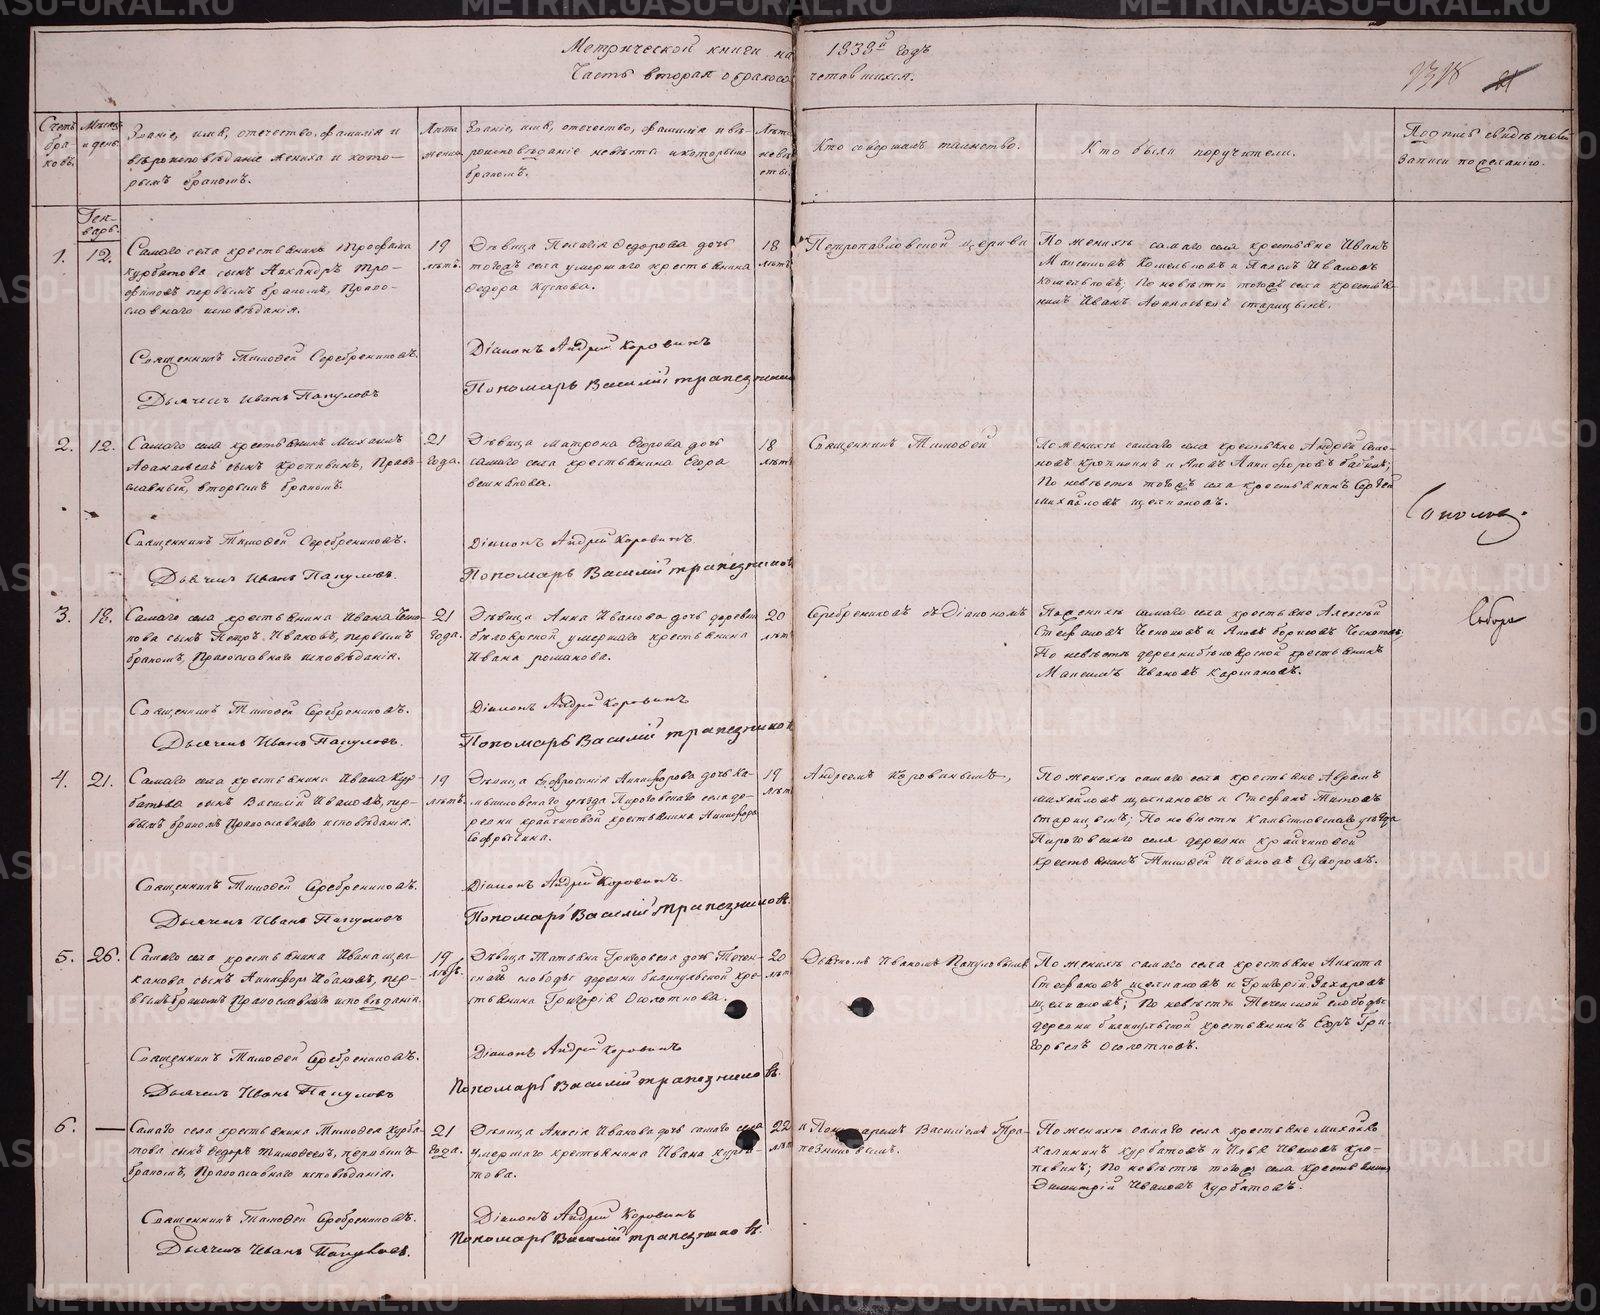 Метрической книги на 1838й годъ
Часть вторая о бракосо четавшихся.
Счетъ браковъ.
Месяцъ и день.
Званіе, имя, отечество, фамилія и
вѣроисповѣданіе жениха и кото-
рымъ бракомъ.
Лѣта жениха.
Званіе, имя, отечество, фамилія и вѣ-
роисповѣданіе невѣсты и которымъ
бракомъ.
Лѣта невѣсты.
Кто совершалъ таинство.
Кто были поручители.
Подпись свидѣтелей
записи по желанію.
Генварь.
1.
12.
Самаго села крестьянина Трофима
Курбатова сынъ Никандръ Тро-
фимовъ первымъ бракомъ, Право-
славнаго исповѣданія.
19
лѣтъ.
Дѣвица Пелагія Федорова дочь
тогожъ села умершаго крестьянина
Федора
18
лѣтъ
Петропавловской церкви
По женихѣ самаго села крестьяне Иванъ
и Павелъ Ивановъ
По невѣстѣ тогожъ села крестья-
нинъ Иванъ Афанасьевъ старицынъ.
Священникъ Тимофей Серебрениковъ.
Діаконъ Андрей Коровинъ
Дьячекъ Иванъ Папуловъ
Пономарь Василій трапезниковъ
2.
12.
Самаго села крестьянинъ Михаилъ
Афанасьевъ сынъ кропивинъ, Право-
славный, вторымъ бракомъ.
21
года.
Дѣвица Матрона Егорова дочь
самаго села крестьянина Егора
18
лѣтъ
Священникъ Тимофей
По женихѣ самаго села крестьяне Андрей
По невѣстѣ тогожъ села крестьянинъ Сергей
михайловъ щелкановъ.
Священникъ Тимофей Серебрениковъ.
Діаконъ Андрей Коровинъ.
Дьячекъ Иванъ Папуловъ.
Пономарь Василій трапезниковъ
3.
18.
Самаго села крестьянина Ивана Чесно-
кова сынъ Петръ Ивановъ, первымъ
бракомъ, Православнаго исповѣданія.
21
года.
Дѣвица Анна Иванова дочь деревни
бѣлоярской умершаго крестьянина
Ивана романова.
20
лѣтъ
Серебрениковъ съ Діакономъ
По женихѣ самаго села крестьяне Алексѣй
Стефановъ Чесноковъ и борисовъ Чесноковъ
По невѣстѣ деревни бѣлоярской крестьянинъ
Иванъ
Священникъ Тимофей Серебрениковъ.
Діаконъ Андрей Коровинъ
Дьячекъ Иванъ Папуловъ.
Пономарь Василій трапезниковъ
4.
21.
Самаго села крестьянина Ивана Кур-
батова сынъ Василій Ивановъ, пер-
вымъ бракомъ Православнаго исповѣданія.
19
лѣтъ.
Дѣвица Евфросинія Никифорова дочь Ка-
мышловскаго уѣзда Пироговскаго села де-
ревни крайчиковой крестьянина Никифора
19
лѣтъ
Андреемъ Коровинымъ,
По женихѣ самаго села крестьяне Аврамъ
михайловъ щелкановъ и Стефанъ Титовъ
старицынъ; По невѣстѣ Камышловскаго уѣзда
Пироговскаго села деревни крайчиковой
крестьянинъ Тимофей Ивановъ Суворовъ.
Священникъ Тимофей Серебрениковъ.
Діаконъ Андрей Коровинъ.
Дьячекъ Иванъ Папуловъ
Пономарь Василій трапезниковъ.
5.
26.
Самаго села крестьянина Ивана щел-
канова сынъ Никифоръ Ивановъ, пер-
вымъ бракомъ Православнаго исповѣданія.
19
лѣтъ.
Дѣвица Татьяна Григорьева дочь Течен-
ской слободы деревни кре-
стьянина Григорія Осолоткова.
20
лѣтъ
Дьячкомъ Иваномъ Папуловымъ
По женихѣ самаго села крестьяне Никита
Стефановъ щелкановъ и Григорій Захаровъ
щелкановъ; По невѣстѣ Теченской слободы
деревни крестьянинъ Егоръ Гри-
горьевъ Осолотковъ.
Священникъ Тимофей Серебрениковъ.
Діаконъ Андрей Коровинъ
Дьячекъ Иванъ Папуловъ
Пономарь Василій трапезниковъ.
6.
Самаго села крестьянина Тимофея Курба-
това сынъ Федоръ Тимофеевъ, первымъ
бракомъ, Православнаго исповѣданія.
21
года.
Дѣвица Анисія Иванова дочь самаго села
умершаго крестьянина Ивана курба-
това.
22
и Пономаремъ Василіемъ Тра-
пезниковымъ.
По женихѣ самаго села крестьяне михайло
калининъ курбатовъ и Илья Ивановъ кро-
пивинъ; По невѣстѣ тогожъ села крестьянинъ
Димитрій Ивановъ Курбатовъ.
Священникъ Тимофей Серебрениковъ.
Діаконъ Андрей Коровинъ
Дьячекъ Иванъ Папуловъ.
Пономарь Василій трапезниковъ.
METRIKI.GASO-URAL.RU